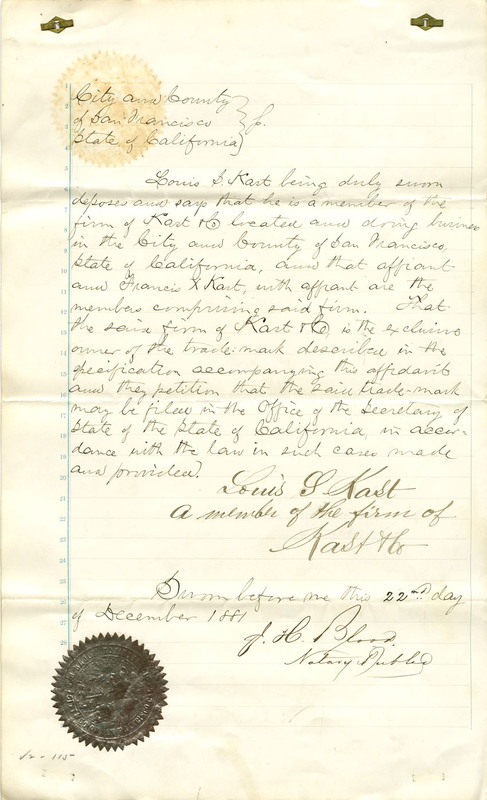 City and County
of San Francisco } ss.
State of California
Louis S. Kast being duly sworn
deposes and says that he is a member of the
firm of Kast & Co located and doing business
in the City and County of San Francisco,
State of California, and that affiant
and Francis X Kast, with affiant are the
members comprising said firm. That
the said firm of Kast & Co, is the exclusive
owner of the trade-mark described in the
specification accompanying this affidavit
and they petition that the said trade-mark
may be filed in the Office of the Secretary of
State of the State of California, in accor-
dance with the law in such cases made
and provided.
Louis S Kast
A member of the firm of
Kast & Co
Sworn before me this 22nd day
of December 1881
J. H. Blood.
Notary Public